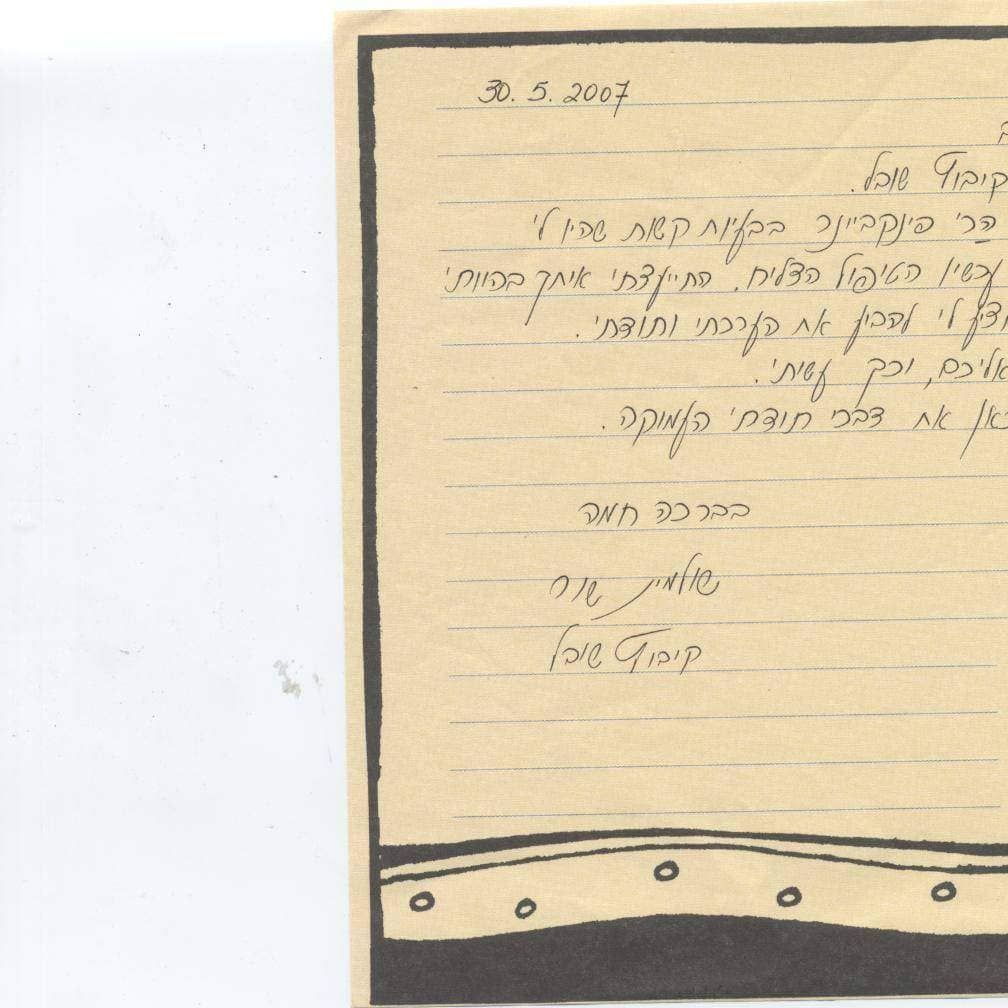 30.5.2007
קיבוץ שובל.
הר' פינקביינר בבעיות קשות שהיו לי
עכשיו הטיפול הצליח. התייעצתי איתך בהוותי
לי להביע את הערכתי ותודתי.
אליכם, וכך עשיתי.
כאן את דברי תודתי העמוקה.
בברכה חמה
שולמית שור
קיבוץ שובל